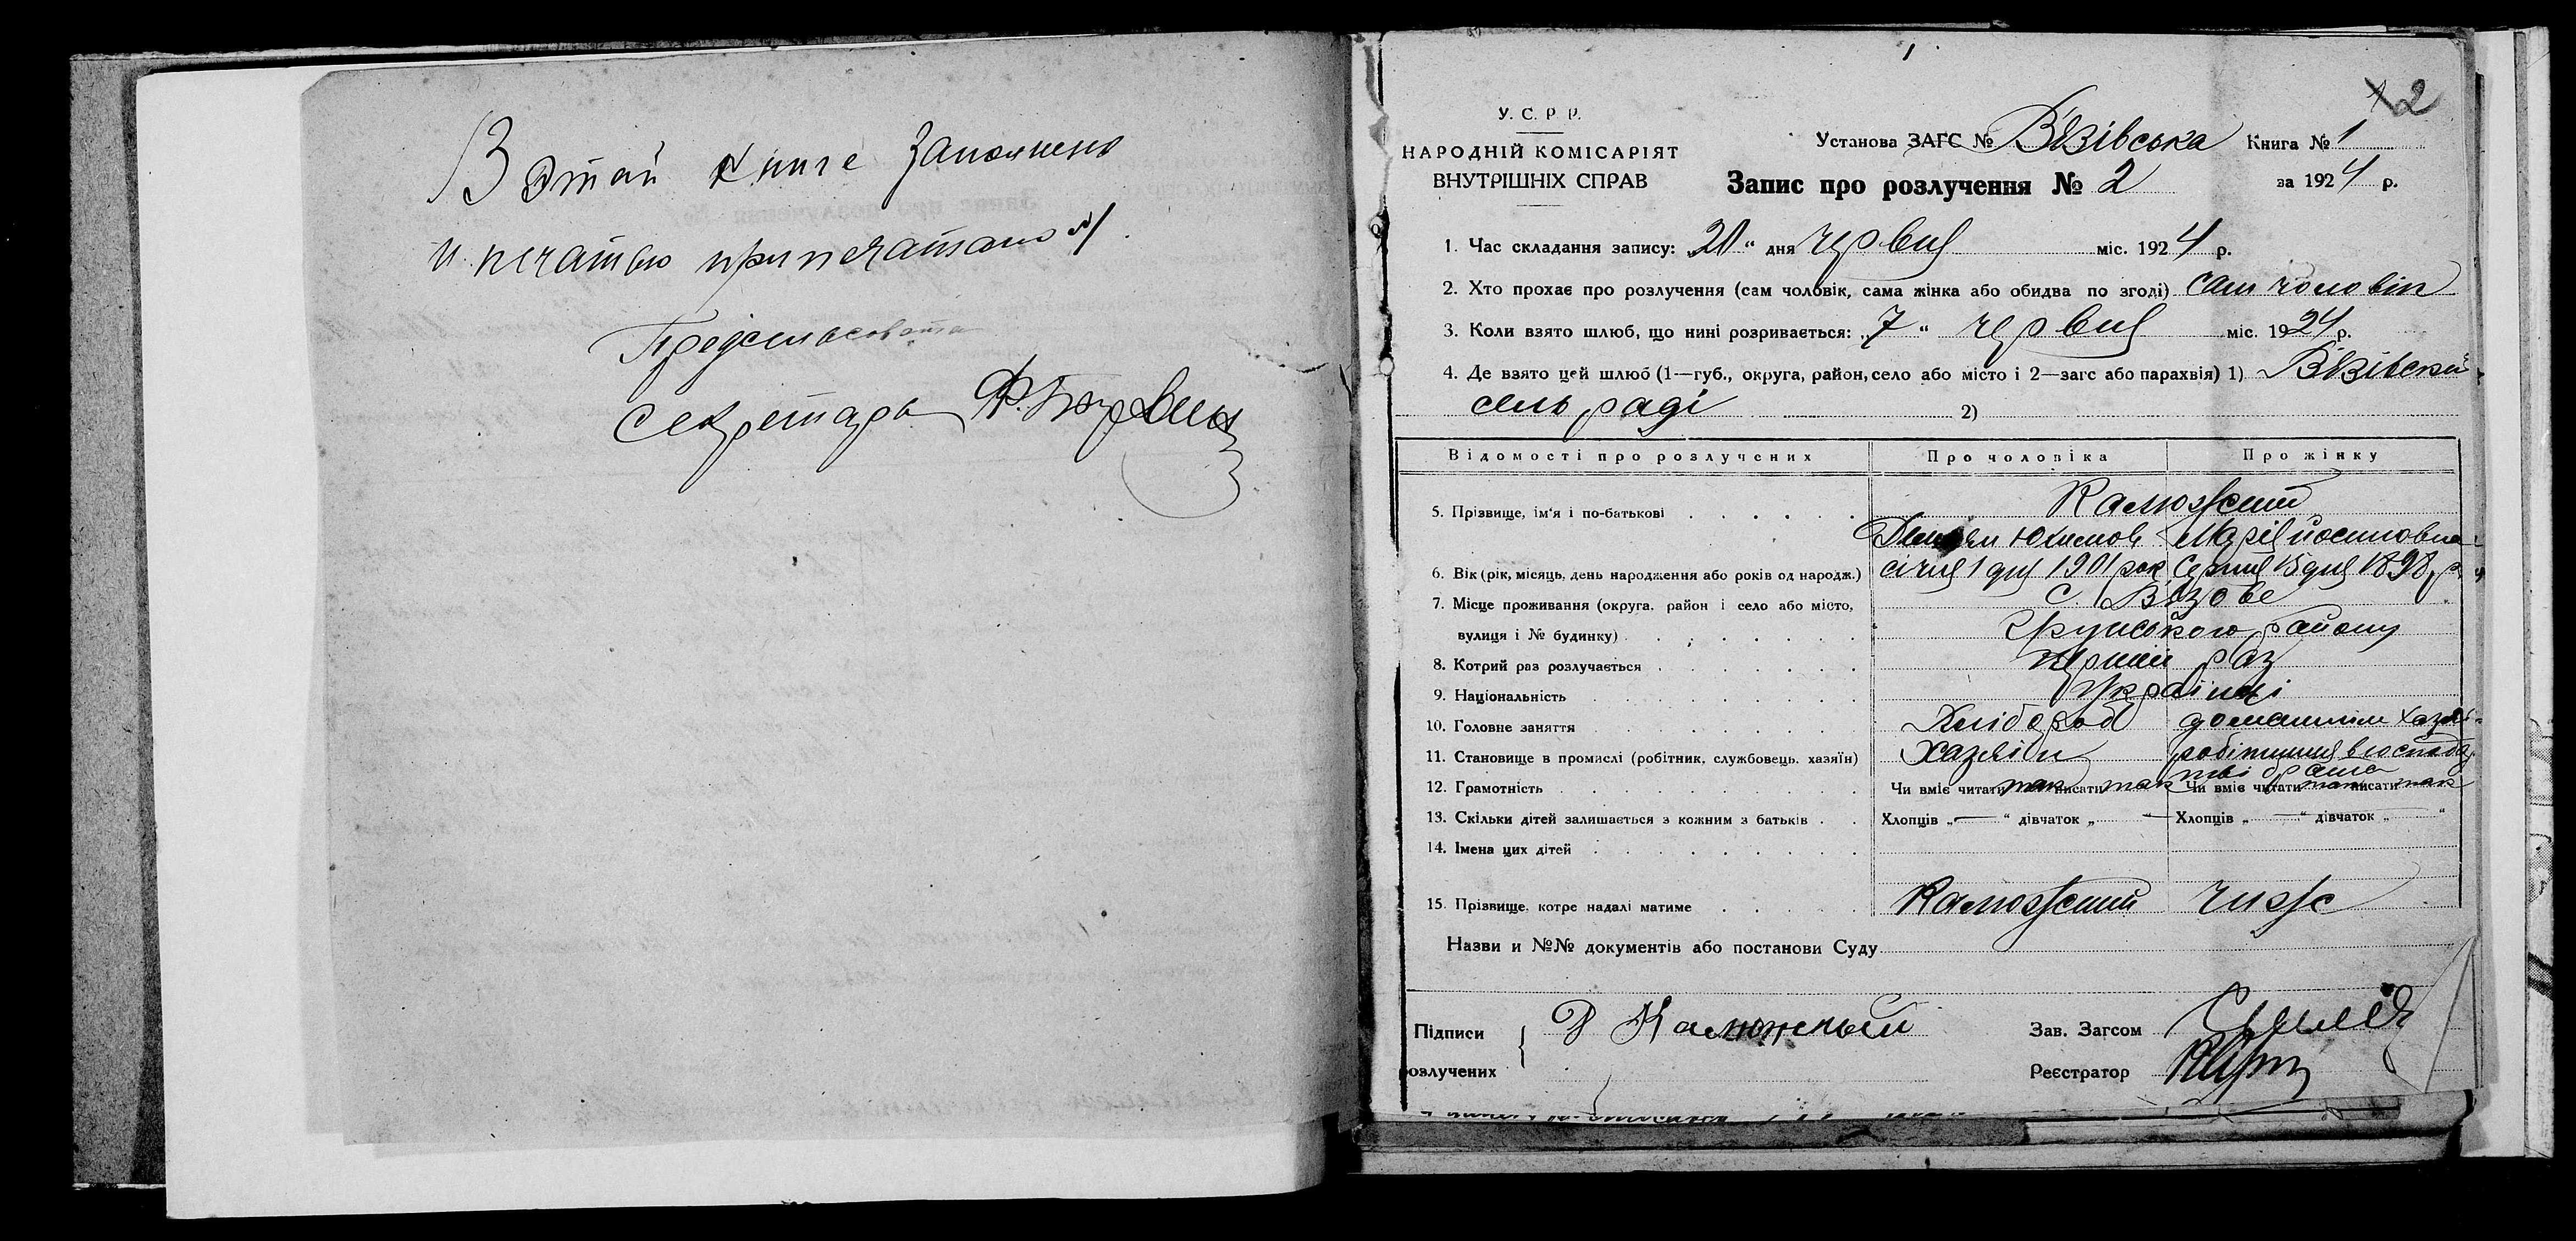 В этой книге
и печатью припечатано
Секретарь
1
2
У. С. Р. Р.
НАРОДНІЙ КОМІСАРІЯТ
ВНУТРІШНІХ СПРАВ
Установа ЗАГС № Вязівська Книга № 1
Запис про розлучення № 2 за 1924 р.
1. Час складання запису: 20 " дня червня міс. 1924 р.
2. Хто прохає про розлучення (сам чоловік, сама жінка або обидва по згоді) сам чоловік
3. Коли взято шлюб, що нині розривається: „7 " червня міс. 1924 р.
4. Де взято цей шлюб (1—губ., округа, район, село або місто і 2—загс або парахвія) 1) Вязівській
сель раді 2)
Відомості про розлучених Про чоловіка Про жінку
5. Прізвище, ім'я і по-батькові Калюжний
Юхимов Марія йосиповна
6. Вік (рік, місяць, день народження або років од народж.) січня 1 дня 1901 рок Серпня 15 дня 1898 р
7. Місце проживання (округа, район і село або місто, с. Вязове
вулиця і № будинку) Грунського району
8. Котрий раз розлучається перший раз
9. Національність Українці
10. Головне заняття Хлібороб домашнім хазяй-
11. Становище в промислі (робітник, службовець, хазяїн) хазяїн робітниця в господар
тві брата
12. Грамотність Чи вміє читати так писати так Чи вміє читати так писати так
13. Скільки дітей залишається з кожним з батьків Хлопців „— " дівчаток „ — Хлопців „ — " дівчаток „ — "
14. Імена цих дітей
15. Прізвище, котре надалі матиме Калюжний Чиж
Назви и №№ документів або постанови Суду
Підписи Д Калюжный Зав. Загсом
розлучених Реєстратор